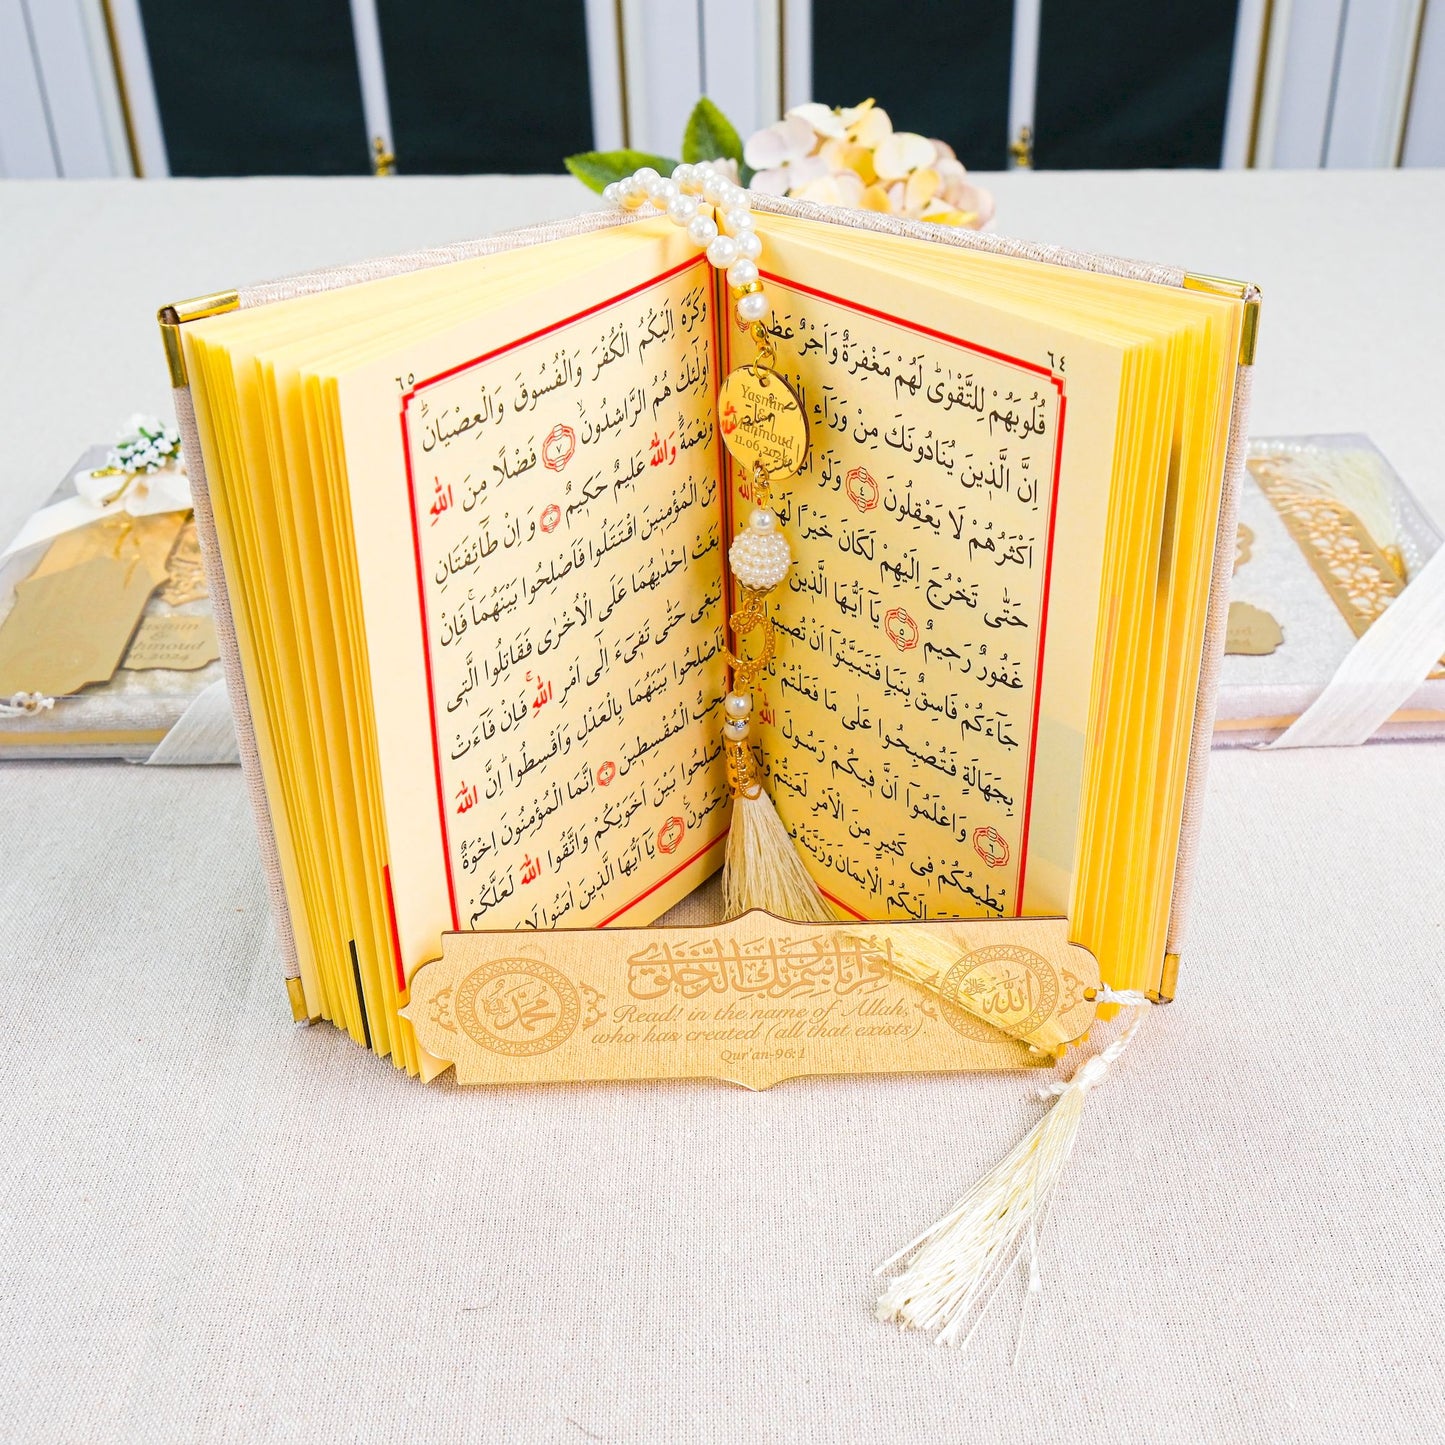 ٦٤
قُلُوبَهُمْ لِلتَّقْوٰىۜ لَهُمْ مَغْفِرَةٌ وَاَجْرٌ
اِنَّ الَّذ۪ينَ يُنَادُونَكَ مِنْ وَرَٓاءِ
اَكْثَرُهُمْ لَا يَعْقِلُونَ ٤ وَلَوْ
حَتّٰى تَخْرُجَ اِلَيْهِمْ لَكَانَ خَيْرًا
غَفُورٌ رَح۪يمٌ ٥ يَٓا اَيُّهَا الَّذ۪ينَ
جَٓاءَكُمْ فَاسِقٌ بِنَبَأٍ فَتَبَيَّنُٓوا اَنْ
بِجَهَالَةٍ فَتُصْبِحُوا عَلٰى مَا فَعَلْتُمْ
٦ وَاعْلَمُٓوا اَنَّ ف۪يكُمْ رَسُولَ اللّٰهِ
يُط۪يعُكُمْ ف۪ي كَث۪يرٍ مِنَ الْاَمْرِ لَعَنِتُّمْ
اِلَيْكُمُ الْا۪يمَانَ وَزَيَّنَهُ
٦٥
وَكَرَّهَ اِلَيْكُمُ الْكُفْرَ وَالْفُسُوقَ وَالْعِصْيَانَۜ
اُو۬لٰٓئِكَ هُمُ الرَّاشِدُونَۙ ٧ فَضْلًا مِنَ اللّٰهِ
وَنِعْمَةًۜ وَاللّٰهُ عَل۪يمٌ حَك۪يمٌ ٨ وَاِنْ طَٓائِفَتَانِ
مِنَ الْمُؤْمِن۪ينَ اقْتَتَلُوا فَاَصْلِحُوا بَيْنَهُمَاۚ فَاِنْ
بَغَتْ اِحْدٰيهُمَا عَلَى الْاُخْرٰى فَقَاتِلُوا الَّت۪ي
تَبْغ۪ي حَتّٰى تَف۪ٓيءَ اِلٰٓى اَمْرِ اللّٰهِۚ فَاِنْ فَٓاءَتْ
فَاَصْلِحُوا بَيْنَهُمَا بِالْعَدْلِ وَاَقْسِطُواۜ اِنَّ اللّٰهَ
يُحِبُّ الْمُقْسِط۪ينَ ٩ اِنَّمَا الْمُؤْمِنُونَ اِخْوَةٌ
فَاَصْلِحُوا بَيْنَ اَخَوَيْكُمْ وَاتَّقُوا اللّٰهَ لَعَلَّكُمْ
تُرْحَمُونَ۟ ١٠ يَٓا اَيُّهَا الَّذ۪ينَ اٰمَنُوا لَا
Yasmin
&
Mahmoud
11.06.2024
اقرأ باسم ربك الذي خلق
Read! in the name of Allah,
who has created (all that exists).
Qur'an-96:1
محمد
الله